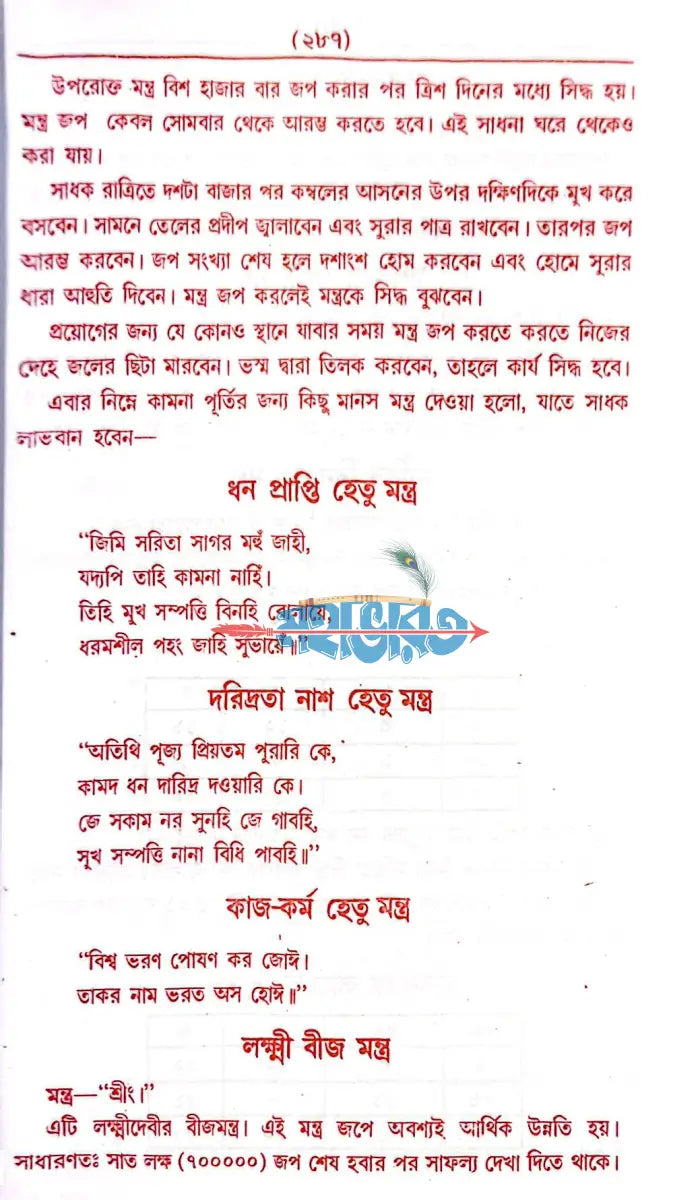 (২৮৭)
উপরোক্ত মন্ত্র বিশ হাজার বার জপ করার পর ত্রিশ দিনের মধ্যে সিদ্ধ হয়।
মন্ত্র জপ কেবল সোমবার থেকে আরম্ভ করতে হবে। এই সাধনা ঘরে থেকেও
করা যায়।
সাধক রাত্রিতে দশটা বাজার পর কম্বলের আসনের উপর দক্ষিণদিকে মুখ করে
বসবেন। সামনে তেলের প্রদীপ জ্বালাবেন এবং সুরার পাত্র রাখবেন। তারপর জপ
আরম্ভ করবেন। জপ সংখ্যা শেষ হলে দশাংশ হোম করবেন এবং হোমে সুরার
ধারা আহুতি দিবেন। মন্ত্র জপ করলেই মন্ত্রকে সিদ্ধ বুঝবেন।
প্রয়োগের জন্য যে কোনও স্থানে যাবার সময় মন্ত্র জপ করতে করতে নিজের
দেহে জলের ছিটা মারবেন। ভস্ম দ্বারা তিলক করবেন, তাহলে কার্য সিদ্ধ হবে।
এবার নিম্নে কামনা পূর্তির জন্য কিছু মানস মন্ত্র দেওয়া হলো, যাতে সাধক
লাভবান হবেন—
ধন প্রাপ্তি হেতু মন্ত্র
“জিমি সরিতা সাগর মহুঁ জাহী,
যদ্যপি তাহি কামনা নাহিঁ।
তিহি মুখ সম্পত্তি বিনহি বোলায়ে,
ধরমশীল পহং জাহি সুভায়েঁ॥”
মহাভারত
দরিদ্রতা নাশ হেতু মন্ত্র
“অতিথি পূজ্য প্রিয়তম পুরারি কে,
কামদ ধন দারিদ্র দওয়ারি কে।
জে সকাম নর সুনহি জে গাবহি,
সুখ সম্পত্তি নানা বিধি পাবহি॥”
কাজ-কর্ম হেতু মন্ত্র
“বিশ্ব ভরণ পোষণ কর জোঈ।
তাকর নাম ভরত অস হোঈ॥”
লক্ষ্মী বীজ মন্ত্র
মন্ত্র—“শ্রীং।”
এটি লক্ষ্মীদেবীর বীজমন্ত্র। এই মন্ত্র জপে অবশ্যই আর্থিক উন্নতি হয়।
সাধারণতঃ সাত লক্ষ (৭০০০০০) জপ শেষ হবার পর সাফল্য দেখা দিতে থাকে।